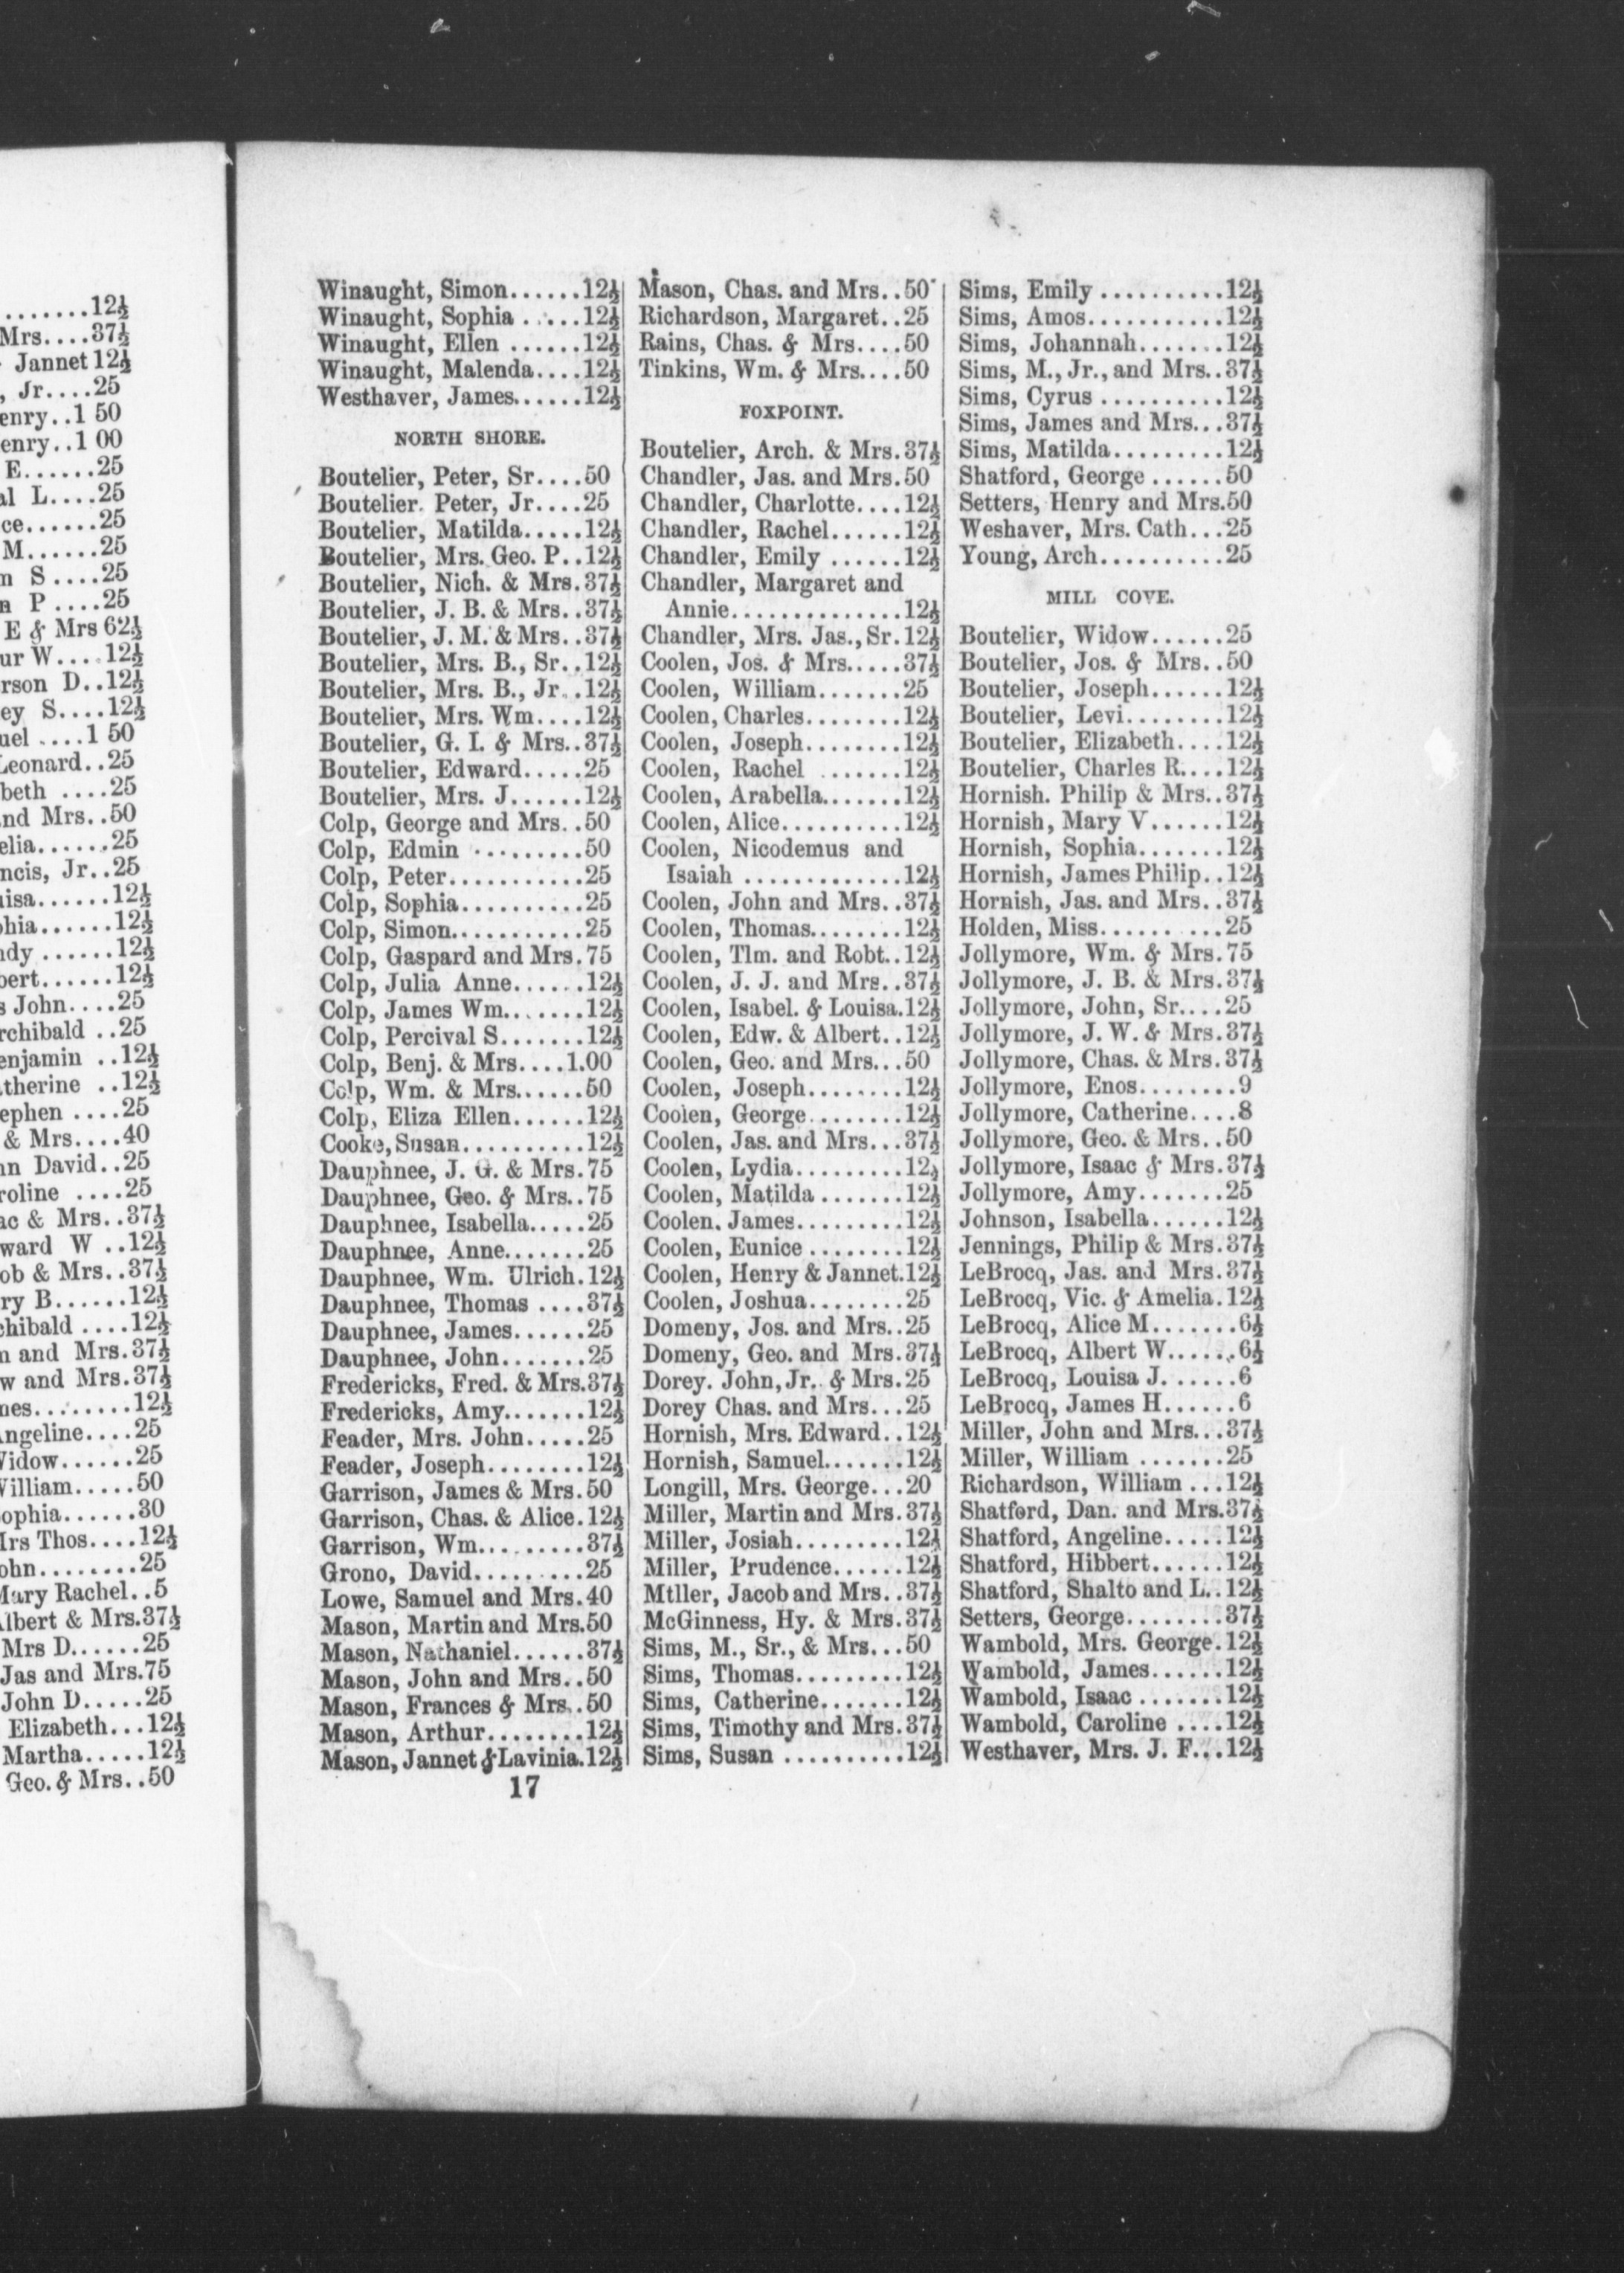 .......12½
Mrs....37½
Jannet 12½
, Jr....25
enry..1 50
enry..1 00
E......25
al L....25
ce......25
M......25
n S....25
n P ....25
E & Mrs 62½
ur W....12½
rson D..12½
ey S....12½
uel ....1 50
Leonard..25
beth ....25
and Mrs..50
elia......25
ncis, Jr..25
uisa......12½
phia......12½
ndy ......12½
bert......12½
s John....25
rchibald ..25
enjamin ..12½
atherine ..12½
ephen ....25
& Mrs....40
nn David..25
roline ....25
ac & Mrs..37½
ward W ..12½
ob & Mrs..37½
ry B......12½
chibald ....12½
n and Mrs.37½
w and Mrs.37½
nes........12½
Angeline....25
Widow......25
William.....50
ophia......30
Mrs Thos....12½
ohn.........25
Mary Rachel..5
Albert & Mrs.37½
Mrs D......25
Jas and Mrs.75
John D.....25
Elizabeth...12½
Martha.....12½
Geo. & Mrs..50
Winaught, Simon......12½
Winaught, Sophia .....12½
Winaught, Ellen ......12½
Winaught, Malenda....12½
Westhaver, James......12½
NORTH SHORE.
Boutelier, Peter, Sr....50
Boutelier. Peter, Jr....25
Boutelier, Matilda.....12½
Boutelier, Mrs. Geo. P..12½
Boutelier, Nich. & Mrs.37½
Boutelier, J. B. & Mrs..37½
Boutelier, J. M. & Mrs..37½
Boutelier, Mrs. B., Sr..12½
Boutelier, Mrs. B., Jr..12½
Boutelier, Mrs. Wm....12½
Boutelier, G. I. & Mrs..37½
Boutelier, Edward.....25
Boutelier, Mrs. J......12½
Colp, George and Mrs..50
Colp, Edmin .........50
Colp, Peter...........25
Colp, Sophia..........25
Colp, Simon...........25
Colp, Gaspard and Mrs.75
Colp, Julia Anne......12½
Colp, James Wm.......12½
Colp, Percival S.......12½
Colp, Benj. & Mrs....1.00
Colp, Wm. & Mrs......50
Colp, Eliza Ellen......12½
Cooke, Susan..........12½
Dauphnee, J. G. & Mrs.75
Dauphnee, Geo. & Mrs..75
Dauphnee, Isabella.....25
Dauphnee, Anne.......25
Dauphnee, Wm. Ulrich.12½
Dauphnee, Thomas ....37½
Dauphnee, James......25
Dauphnee, John.......25
Fredericks, Fred. & Mrs.37½
Fredericks, Amy.......12½
Feader, Mrs. John.....25
Feader, Joseph........12½
Garrison, James & Mrs.50
Garrison, Chas. & Alice.12½
Garrison, Wm.........37½
Grono, David..........25
Lowe, Samuel and Mrs.40
Mason, Martin and Mrs.50
Mason, Nathaniel......37½
Mason, John and Mrs..50
Mason, Frances & Mrs..50
Mason, Arthur........12½
Mason, Jannet & Lavinia.12½
17
Mason, Chas. and Mrs..50
Richardson, Margaret..25
Rains, Chas. & Mrs....50
Tinkins, Wm. & Mrs....50
FOXPOINT.
Boutelier, Arch. & Mrs.37½
Chandler, Jas. and Mrs.50
Chandler, Charlotte....12½
Chandler, Rachel......12½
Chandler, Emily ......12½
Chandler, Margaret and
Annie..............12½
Chandler, Mrs. Jas., Sr.12½
Coolen, Jos. & Mrs.....37½
Coolen, William.......25
Coolen, Charles........12½
Coolen, Joseph........12½
Coolen, Rachel .......12½
Coolen, Arabella.......12½
Coolen, Alice..........12½
Coolen, Nicodemus and
Isaiah .............12½
Coolen, John and Mrs..37½
Coolen, Thomas........12½
Coolen, Tlm. and Robt..12½
Coolen, J. J. and Mrs..37½
Coolen, Isabel. & Louisa.12½
Coolen, Edw. & Albert..12½
Coolen, Geo. and Mrs...50
Coolen, Joseph........12½
Coolen, George........12½
Coolen, Jas. and Mrs...37½
Coolen, Lydia.........12½
Coolen, Matilda .......12½
Coolen. James.........12½
Coolen, Eunice ........12½
Coolen, Henry & Jannet.12½
Coolen, Joshua........25
Domeny, Jos. and Mrs..25
Domeny, Geo. and Mrs.37½
Dorey. John, Jr. & Mrs.25
Dorey Chas. and Mrs...25
Hornish, Mrs. Edward..12½
Hornish, Samuel.......12½
Longill, Mrs. George...20
Miller, Martin and Mrs.37½
Miller, Josiah.........12½
Miller, Prudence......12½
Mtller, Jacob and Mrs..37½
McGinness, Hy. & Mrs.37½
Sims, M., Sr., & Mrs...50
Sims, Thomas.........12½
Sims, Catherine.......12½
Sims, Timothy and Mrs.37½
Sims, Susan ..........12½
Sims, Emily ..........12½
Sims, Amos...........12½
Sims, Johannah.......12½
Sims, M., Jr., and Mrs..37½
Sims, Cyrus ..........12½
Sims, James and Mrs...37½
Sims, Matilda.........12½
Shatford, George ......50
Setters, Henry and Mrs.50
Weshaver, Mrs. Cath...25
Young, Arch..........25
MILL COVE.
Boutelier, Widow......25
Boutelier, Jos. & Mrs..50
Boutelier, Joseph......12½
Boutelier, Levi........12½
Boutelier, Elizabeth....12½
Boutelier, Charles R....12½
Hornish. Philip & Mrs..37½
Hornish, Mary V......12½
Hornish, Sophia.......12½
Hornish, James Philip..12½
Hornish, Jas. and Mrs..37½
Holden, Miss..........25
Jollymore, Wm. & Mrs.75
Jollymore, J. B. & Mrs.37½
Jollymore, John, Sr....25
Jollymore, J. W. & Mrs.37½
Jollymore, Chas. & Mrs.37½
Jollymore, Enos........9
Jollymore, Catherine....8
Jollymore, Geo. & Mrs..50
Jollymore, Isaac & Mrs.37½
Jollymore, Amy.......25
Johnson, Isabella......12½
Jennings, Philip & Mrs.37½
LeBrocq, Jas. and Mrs.37½
LeBrocq, Vic. & Amelia.12½
LeBrocq, Alice M.......6½
LeBrocq, Albert W......6½
LeBrocq, Louisa J.......6
LeBrocq, James H......6
Miller, John and Mrs...37½
Miller, William .......25
Richardson, William ...12½
Shatford, Dan. and Mrs.37½
Shatford, Angeline.....12½
Shatford, Hibbert......12½
Shatford, Shalto and L..12½
Setters, George........37½
Wambold, Mrs. George.12½
Wambold, James......12½
Wambold, Isaac .......12½
Wambold, Caroline ....12½
Westhaver, Mrs. J. F...12½